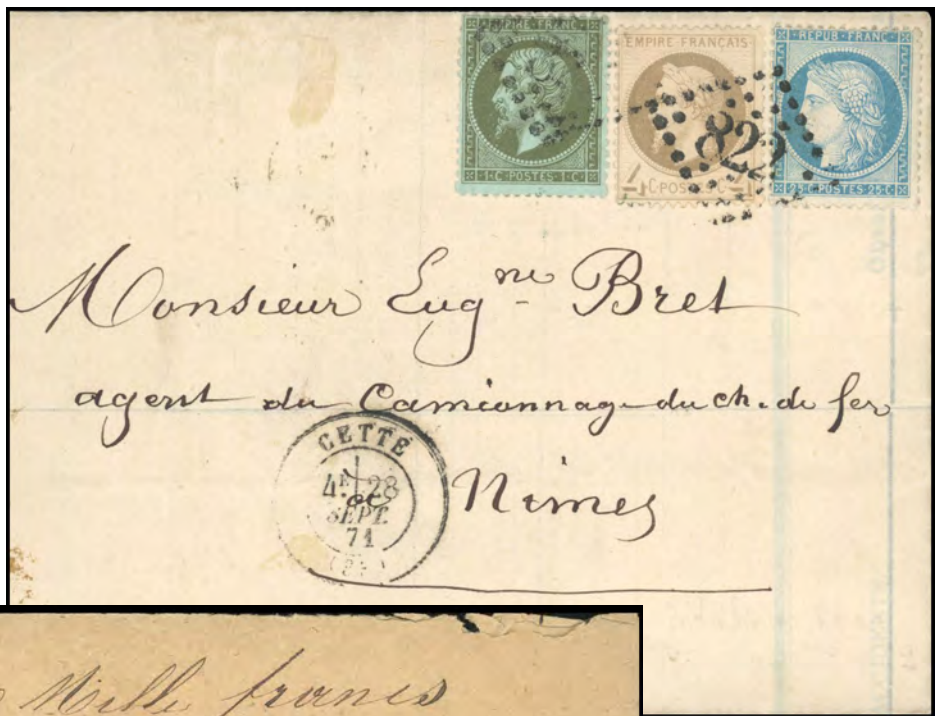 EMPIRE FRANC.
1·C·POSTES·1·C·
EMPIRE FRANÇAIS
4 C·POSTES·C· 4
·REPUB·FRANC·
25·C·POSTES·25·C·
822
Monsieur Eug.ne Bret
agent du Camionnage du ch. de fer
Nimes
CETTE
4E 28
SEPT.
71
Mille francs